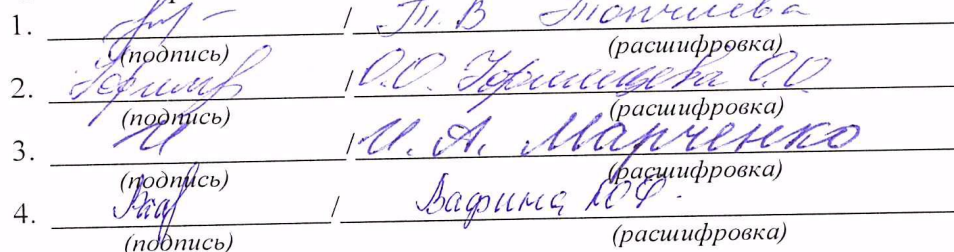 1. / Т.В Топчиева
(подпись) (расшифровка)
2. / О.О. О.О
(подпись) (расшифровка)
3. / И. А. Марченко
(подпись) (расшифровка)
4. / Вафина Ю.Ф.
(подпись) (расшифровка)